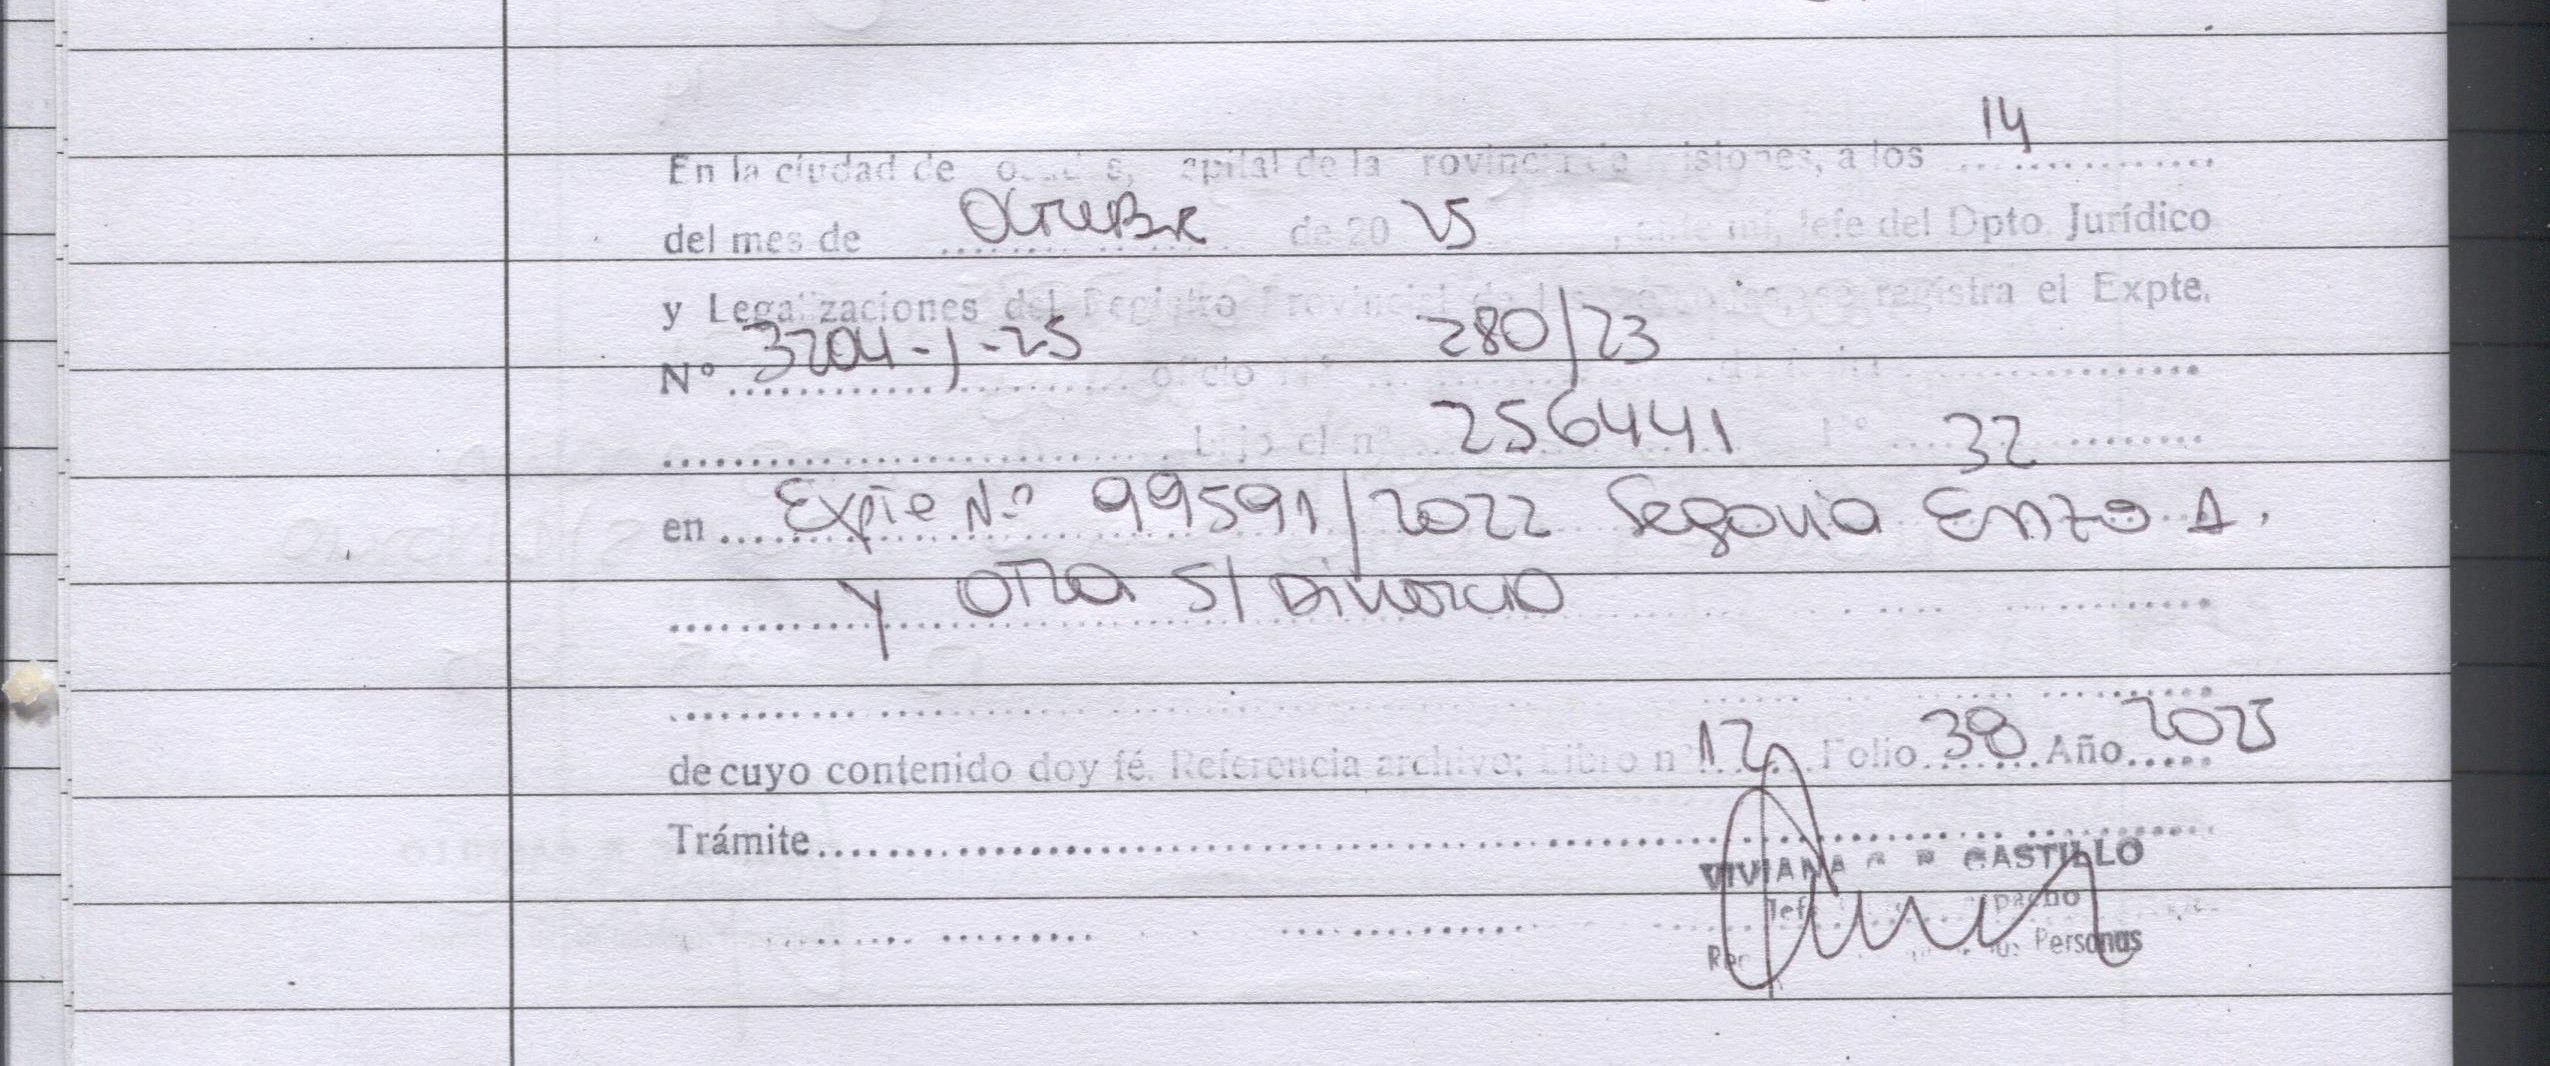 14
En la ciudad de capital de la Provincia de Misiones, a los ........
del mes de Octubre de 20 25, ante mí, Jefe del Dpto. Jurídico
y Legalizaciones del Registro Provincial de las Personas, se registra el Expte.
Nº 3204-J-25 oficio Nº 280/23
bajo el nº 256441 Fº 32
en Expte Nº 99591/2022 Segovia Enzo A.
y otra S/ Divorcio
de cuyo contenido doy fé. Referencia archivo: Libro nº 12 Folio 38 Año 2025
Trámite
VIVIANA CASTILLO
Personas